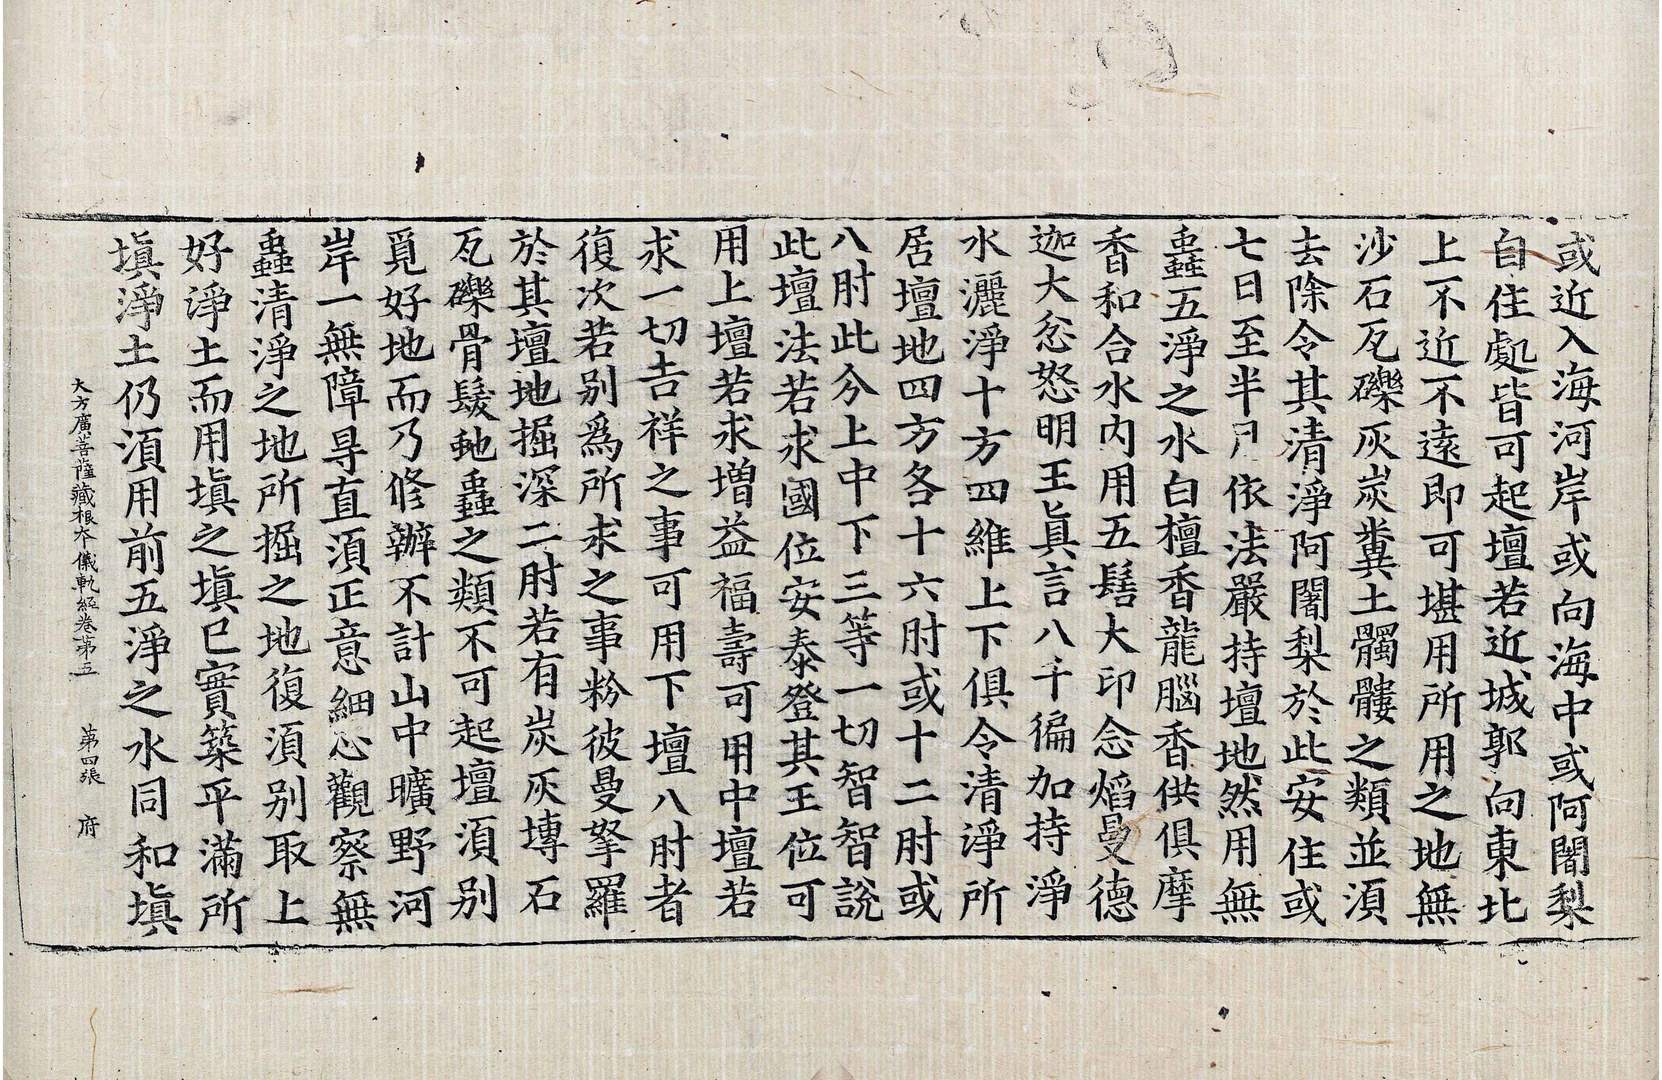 或近入海河岸或向海中或阿闍梨
自住處皆可起壇若近城郭向東北
上不近不遠即可堪用所用之地無
沙石瓦礫灰炭糞土髑髏之類並須
去除令其清淨阿闍梨於此安住或
七日至半月依法嚴持壇地然用無
蟲五淨之水白檀香龍腦香供俱摩
香和合水内用五髻大印念焰曼德
迦大忿怒明王眞言八千徧加持淨
水灑淨十方四維上下俱令清淨所
居壇地四方各十六肘或十二肘或
八肘此分上中下三等一切智智說
此壇法若求國位安泰登其王位可
用上壇若求增益福壽可用中壇若
求一切吉祥之事可用下壇八肘者
復次若别爲所求之事粉彼曼拏羅
於其壇地掘深二肘若有炭灰塼石
瓦礫骨髮虵蟲之類不可起壇須别
覓好地而乃修辦不計山中曠野河
岸一無障㝵直須正意細心觀察無
蟲清淨之地所掘之地復須别取上
好淨土而用塡之塡已實築平滿所
塡淨土仍須用前五淨之水同和塡
大方廣菩薩藏根本儀軌經卷第五 第四張 府